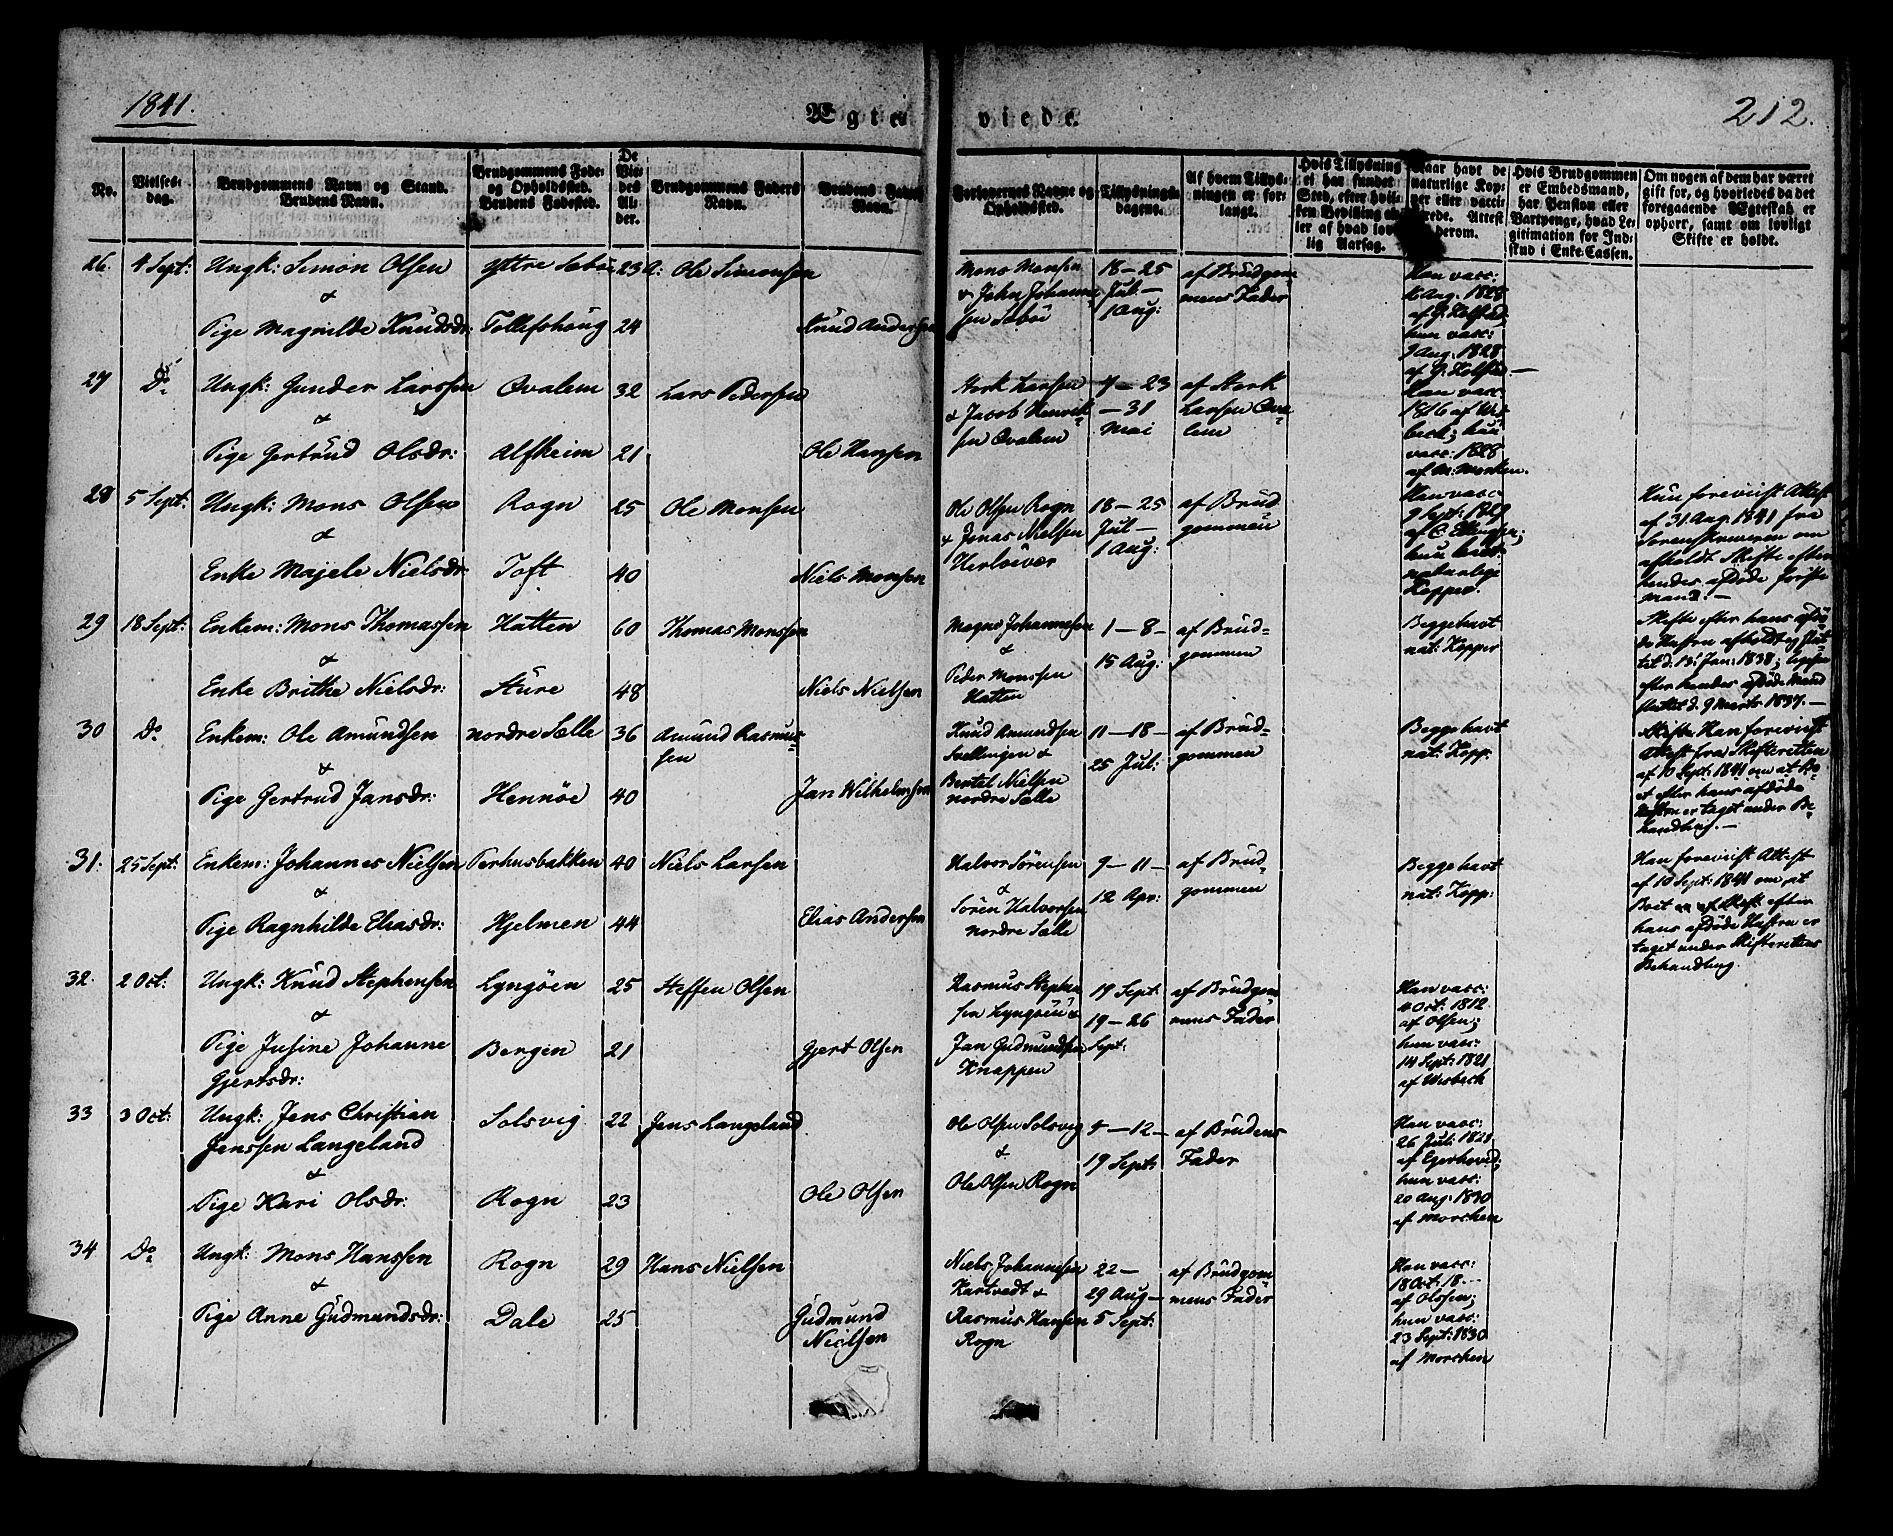 1841.
Ægteviede.
212.
No.
Vielsesdag.
Brudgommens Navn og Stand. Brudens Navn.
Brudgommens Føde- og Opholdssted. Brudens Fødested.
De Viedes Alder.
Brudgommens Faders Navn.
Brudens Faders Navn.
Forlovernes Navne og Opholdssted.
Tillysningsdagene.
Af hvem Tillysningen er forlangt.
Hvis Tillysning ei har fundet Sted, efter hvilken Bevilling eller af hvad lovlig Aarsag.
Naar havt de naturlige Kopper eller vaccinerede. Attest derom.
Hvis Brudgommen er Embedsmand, har Pension eller Vartpenge, hvad Legitimation for Indskud i Enke-Cassen.
Om nogen af dem har været gift før, og hvorledes da det foregaaende Ægteskab er ophørt, samt om lovligt Skifte er holdt.
26. 4 Sept: Ungk: Simon Olsen Yttre Sæbø 23 A: Ole Simonsen
&
Pige Magnilde Knudsdr: Tollefshoug 24 Knud Andersen
Mons Monsen & John Johannessen Sæbø
18–25 Jul:– 1 Aug:
af Brudgommens Fader
Han vacc: Aug. 1828 af
hun vacc: 9 Aug. 1828 af
27 Do Ungk: Gunder Larssen Qvalem 32 Lars Pedersen
&
Pige Gertrud Olsdr: Alfheim 21 Ole Hansen
Sterk Larsen & Jacob Henriksen Qvalem
–23 –31 Mai
af Sterk Larsen Qvalem
Han vacc: 1816 af
hun vacc: 1828 af M: Morken.
28 5 Sept: Ungk: Mons Olsen Rogn 25 Ole Monsen
&
Enke Majele Nielsdr Toft 40 Niels Monsen
Ole Olsen Rogn & Jonas Nielsen Herløevær
18–25 Jul– 1 Aug:
af Brudgommen
Han vacc: 9 Sept: af C. Ellingsen;
hun havt naturlige Kopper.
Hun foreviist Attest af 31 Aug. 1841 fra Sorenskriveren om afholdt Skifte efter hendes afdøde første Mand.–
29 18 Sept: Enkem: Mons Thomassen Hatten 60 Thomas Monssen
&
Enke Brithe Nielsdr: Sture 48 Niels Nielsen
Magne Johannesen & Peder Monssen Hatten
1–8– 15 Aug:
af Brudgommen
Begge havt nat: Kopper
Skifte efter hans afdøde Hustru afholdt og sluttet d. 13: Jan: 1838; efter hendes afdøde Mand sluttet d. 9 Marts 1837.–
30 Do Enkem: Ole Amundsen nordre Sælle 36 Amund Rasmussen
&
Pige Gertrud Jansdr: Hennøe 40 Jan Wilhelmsen
Knud Amundsen Sællingen & Bertel Nielsen nordre Sælle
11–18– 25 Jul:
af Brudgommen
Begge havt nat: Kopp:
Han foreviist Attest fra Skifteretten af 10 Sept: 1841 om at Boet efter hans afdøde Hustru er taget under Behandling.–
31. 25 Sept: Enkem: Johannes Nielsen Perhusbakken 40 Niels Larsen
&
Pige Ragnhilde Eliasdr: Hjelmen 44 Elias Andersen
Halvor Sörensen & Sören Halvorsen nordre Sælle
9–11– 12 Apr:
af Brudgommen
Begge havt nat: Kopp:
Han foreviist Attest af 10 Sept: 1841 om, at Boet efter hans afdøde Hustru er taget under Skifterettens Behandling.
32. 2 Oct: Ungk: Knud Stephensen Lyngöen 25 Steffen Olsen
&
Pige Jusine Johanne Gjertsdr: Bergen 21 Gjert Olsen
Rasmus Stephensen Lyngöen & Jan Gudmundsen Knappen
19 Sept: 19–26 Sept:
af Brudgommens Fader
Han vacc: Oct: 1812 af Olsen;
hun vacc: 14 Sept: 1821 af Wesbeck
33 3 Oct: Ungk: Jens Christian Jenssen Langeland Solsvig 22 Jens Langeland
&
Pige Kari Olsdr: Rogn 23 Ole Olsen
Ole Olsen Solsvig & Ole Olsen Rogn
–12– 19 Sept:
af Brudens Fader
Han vacc: 26 Jul: 1821 af Egerhoved;
hun vacc: 20 Aug: 1830 af Morchen
34 Do Ungk: Mons Hanssen Rogn 29 Hans Nielsen
&
Pige Anne Gudmundsdr: Dale 25 Gudmund Nielsen
Niels Johannesen Kartvedt & Rasmus Hansen Rogn
22– 29 Aug– 5 Sept:
af Brudgommens Fader
Han vacc: 18 Oct: 18... af Olssen;
hun vacc: 23 Sept: 1830 af Morchen